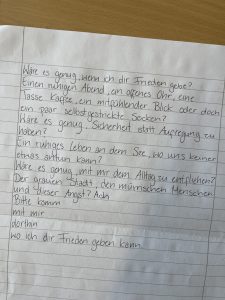 Wäre es genug, wenn ich dir Frieden gebe?
Einen ruhigen Abend, ein offenes Ohr, eine
Tasse Kaffee, ein mitfühlender Blick oder doch
ein paar selbstgestrickte Socken?
Wäre es genug, Sicherheit statt Aufregung zu
haben?
Ein ruhiges Leben an dem See, wo uns keiner
etwas antun kann?
Wäre es genug, mit mir dem Alltag zu entfliehen?
Der grauen Stadt, den mürrischen Menschen
und dieser Angst?
Bitte komm
mit mir
dorthin
wo ich dir Frieden geben kann.